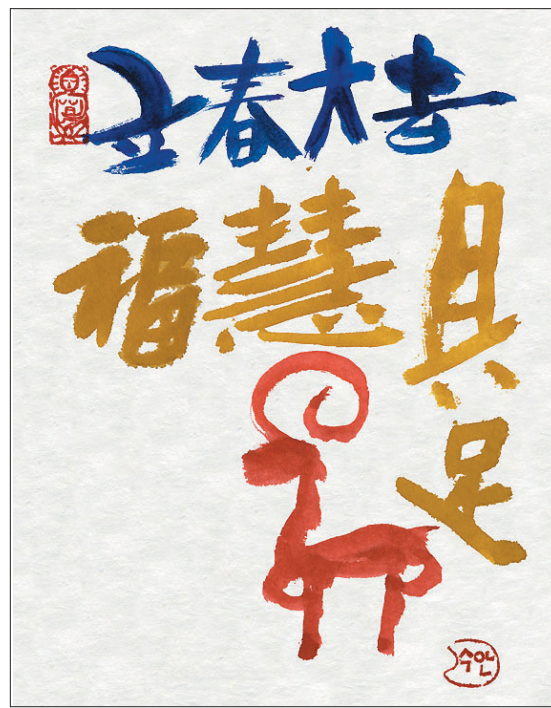 立春大吉
福慧具
足
수안